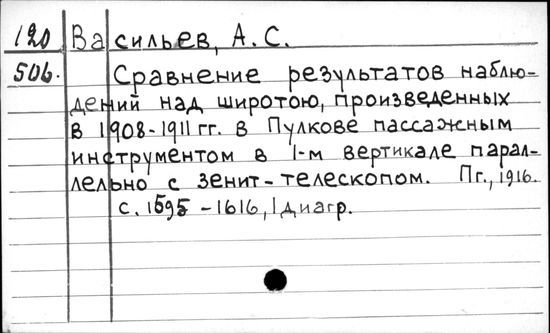 120 Васильев, А. С.
506. Сравнение результатов наблю-
дений над широтою, произведенных
в 1908-1911 гг. в Пулкове пассажным
инструментом в 1-м вертикале парал-
лельно с зенит-телескопом. Пг., 1916.
с. 1595 - 1616, 1 диагр.